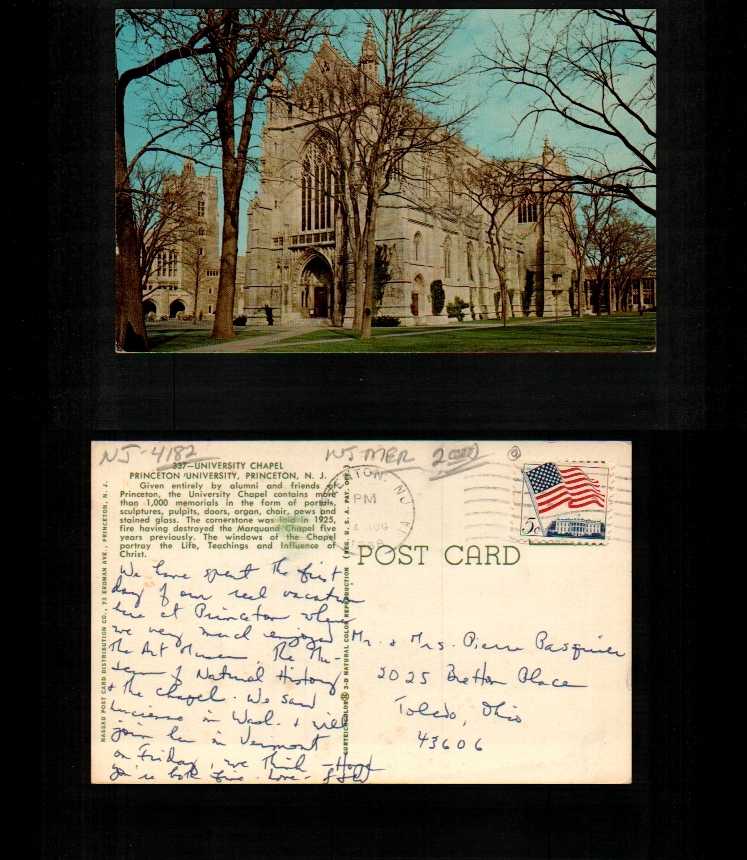 NJ-4182 NJ MER 2000
337—UNIVERSITY CHAPEL
PRINCETON UNIVERSITY, PRINCETON, N. J.
Given entirely by alumni and friends of
Princeton, the University Chapel contains more
than 1,000 memorials in the form of portals,
sculptures, pulpits, doors, organ, choir, pews and
stained glass. The cornerstone was laid in 1925,
fire having destroyed the Marquand Chapel five
years previously. The windows of the Chapel
portray the Life, Teachings and Influence of
Christ.
NASSAU POST CARD DISTRIBUTION CO., 73 ERDMAN AVE., PRINCETON, N. J.
We have spent the first
day of our real vacation
here at Princeton where
we very much enjoyed
The Art Museum, The Mu-
seum of Natural History
& the chapel. We saw
in Wash. & will
join her in Vermont
on Friday, we think - Hope
you're both fine. Love -
CURTEICHCOLOR 3-D NATURAL COLOR REPRODUCTION (REG. U.S.A. PAT. OFF.)
NJ
PM
AUG
5c
POST CARD
Mr. & Mrs. Pierre Pasquier
2025 Bretton Place
Toledo, Ohio
43606